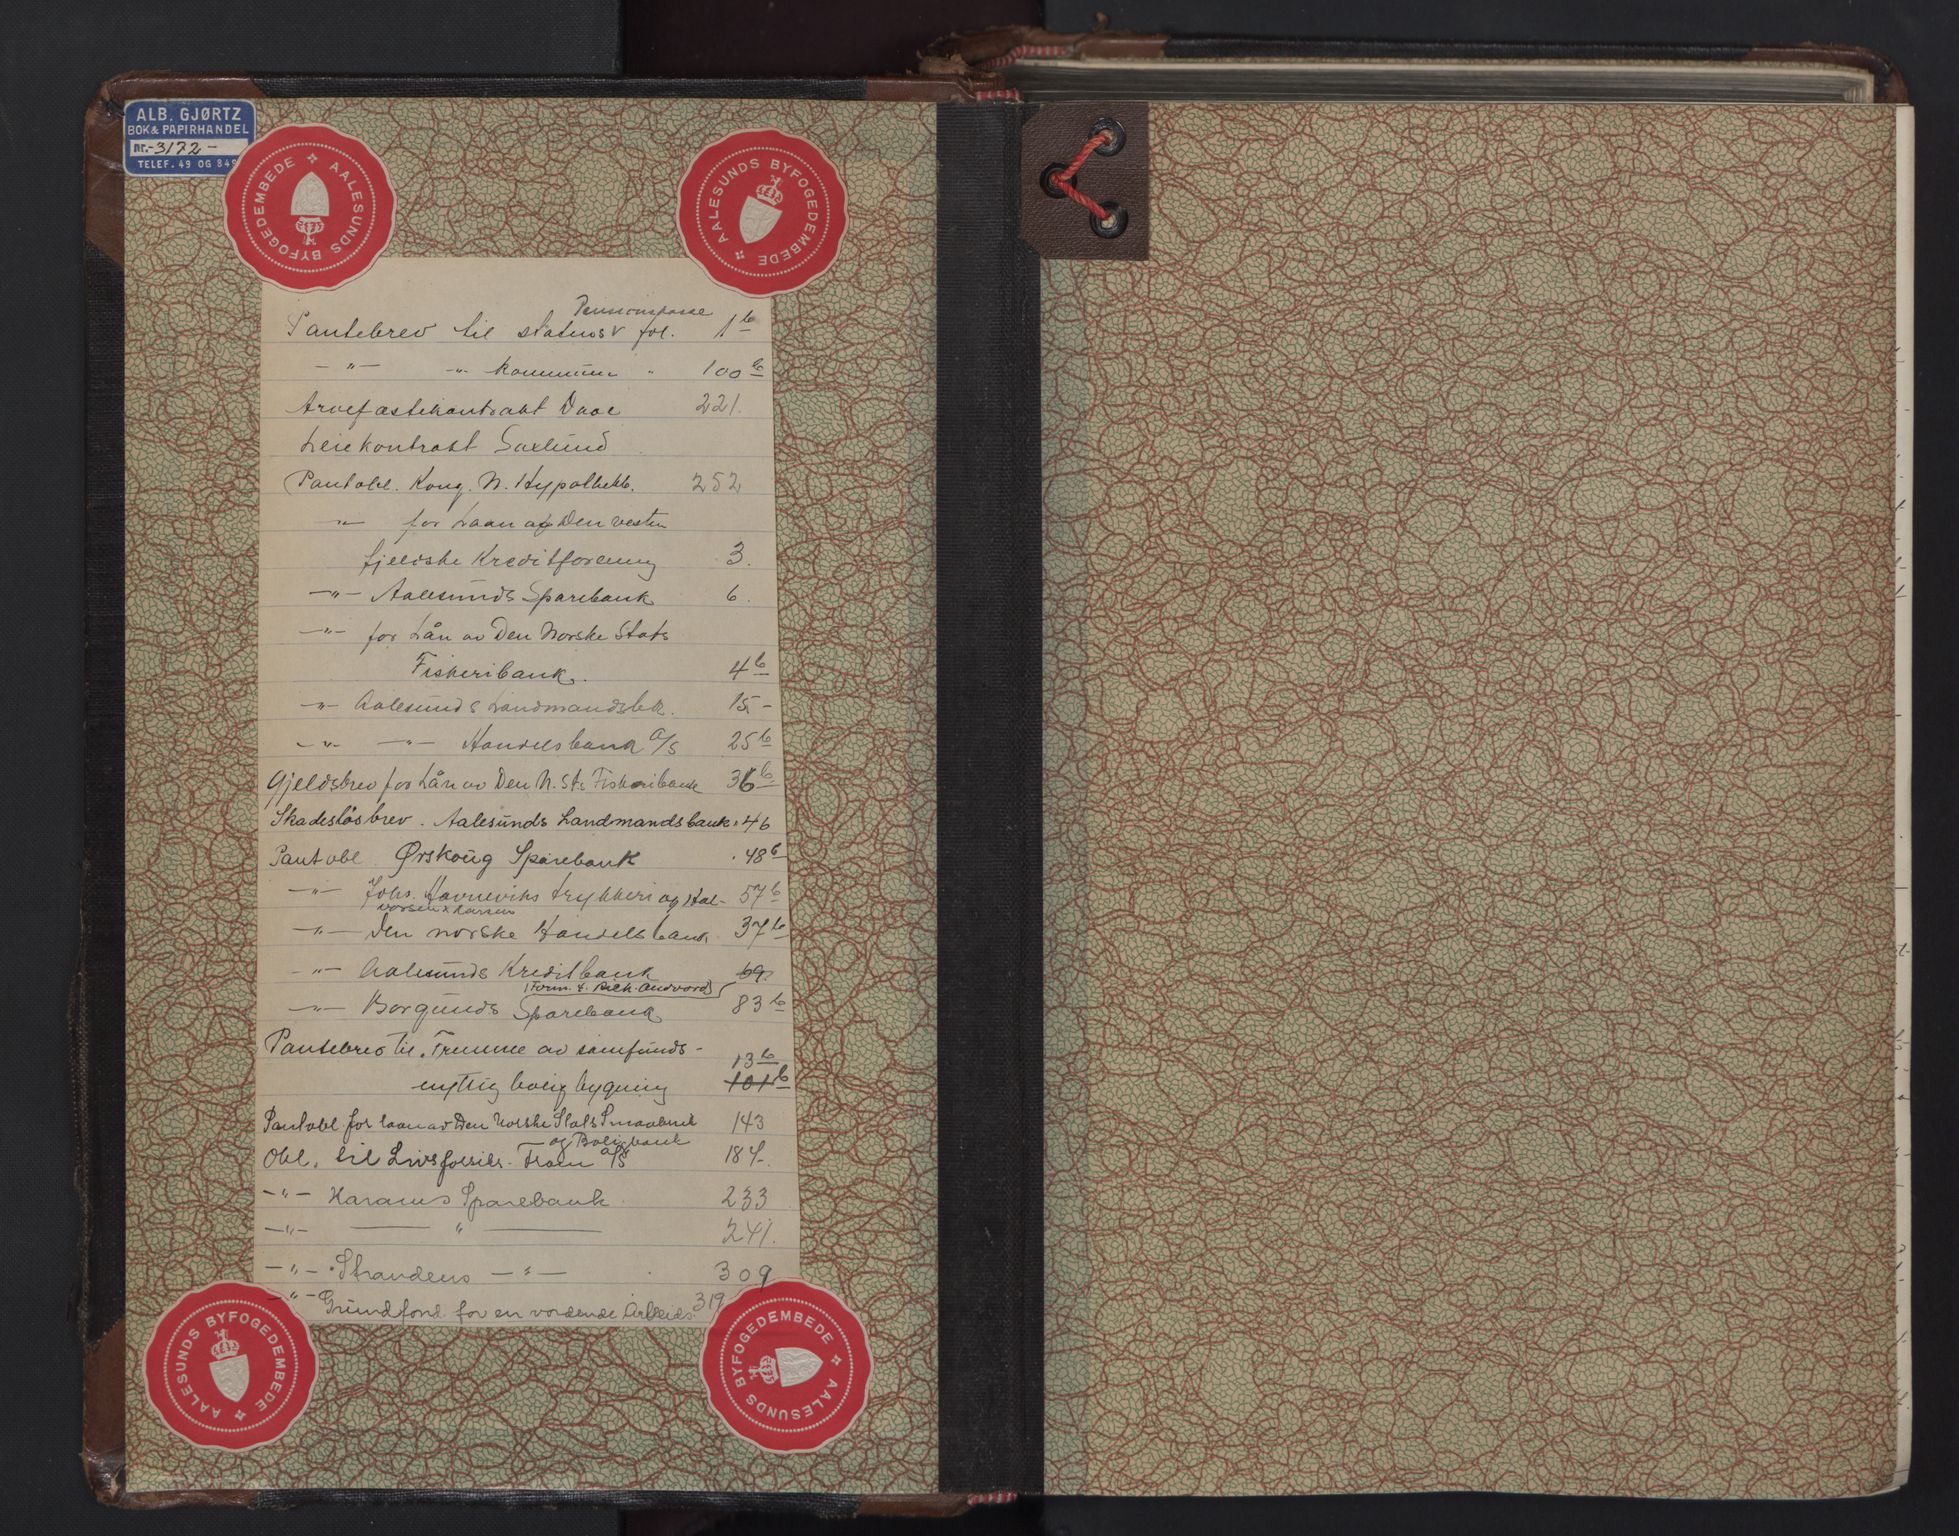 ALB. GJØRTZ
BOK & PAPIRHANDEL
nr. -3172-
TELEF. 49 OG 849
AALESUNDS BYFOGEDEMBEDE
AALESUNDS BYFOGEDEMBEDE
Pensionskasse
Pantebrev til statens v fol. 1 b
-"- -"- Kommune " 100 b
Arvefæstekontrakt Daae 221.
Leiekontrakt Saxlund
Pantobl. Kong. N. Hypothekb. 252
-"- for Laan af Den vesten
fjeldske Kreditforening 3.
-"- Aalesunds Sparebank 6.
-"- for Lån av Den Norske Stats
Fiskeribank. 4 b
-"- Aalesunds Landmandsbk. 15 -
-"- -"- Handelsbank A/S 25 b
Gjeldsbrev for Lån av Den N. Sts Fiskeribank 36 b
Skadesløsbrev. Aalesunds Landmandsbank. 46
Pantobl. Ørskoug Sparebank . 48 b
-"- Johs. Havneviks trykkeri og Hal- 57 b
vorsen & Larsen
-"- Den norske Handelsbank 37 b
-"- Aalesunds Kreditbank 69.
(Form. t. Rich. Andvord)
-"- Borgunds Sparebank 83 b
Pantebrev til. Fremme av samfunds-
13 b
nyttig boligbygning 101 b
Pantobl for laan av Den Norske Stats Smaabruk 143
og Boligbank
Obl. til Livsforsikr. Fram A/S 184.
-"- Harams Sparebank 233
-"- " 241.
-"- Strandens -"- 309
-"- Grundfond for en vordende Arbeids 319
AALESUNDS BYFOGEDEMBEDE
AALESUNDS BYFOGEDEMBEDE